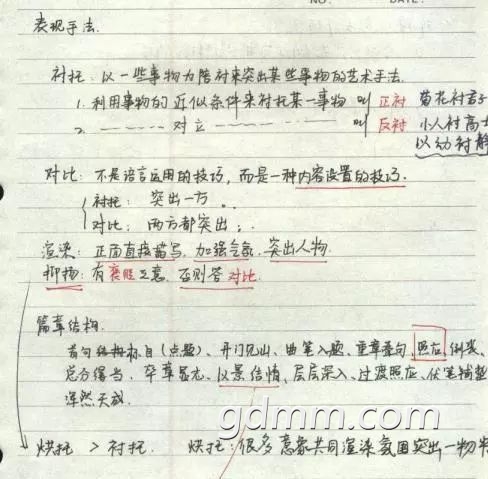 NO. DATE.
表现手法.
衬托: 以一些事物为陪衬来突出某些事物的艺术手法.
1. 利用事物的近似条件来衬托某一事物 叫 正衬 菊花衬君子
2. ——————对立—————— 叫 反衬 小人衬高士
以动衬静
对比: 不是语言运用的技巧, 而是一种内容设置的技巧.
衬托: 突出一方.
对比: 两方都突出;
渲染: 正面直接描写, 加强气氛, 突出人物.
抑扬: 有褒贬之意, 否则答对比.
篇章结构.
首句标目(点题)、开门见山、曲笔入题、重章叠句、照应、倒装、
总分得当、卒章显志、以景结情、层层深入、过渡照应、伏笔铺垫
浑然天成.
gdmm.com
烘托 > 衬托. 烘托: 很多意象共同渲染氛围突出一物